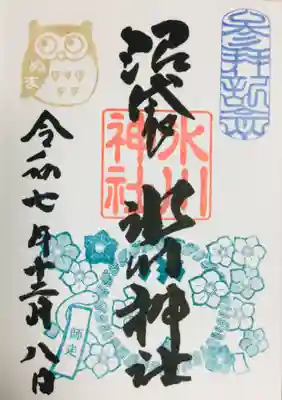 参拝記念
沼袋 氷川神社
氷川
神社
令和七年十二月八日
師走